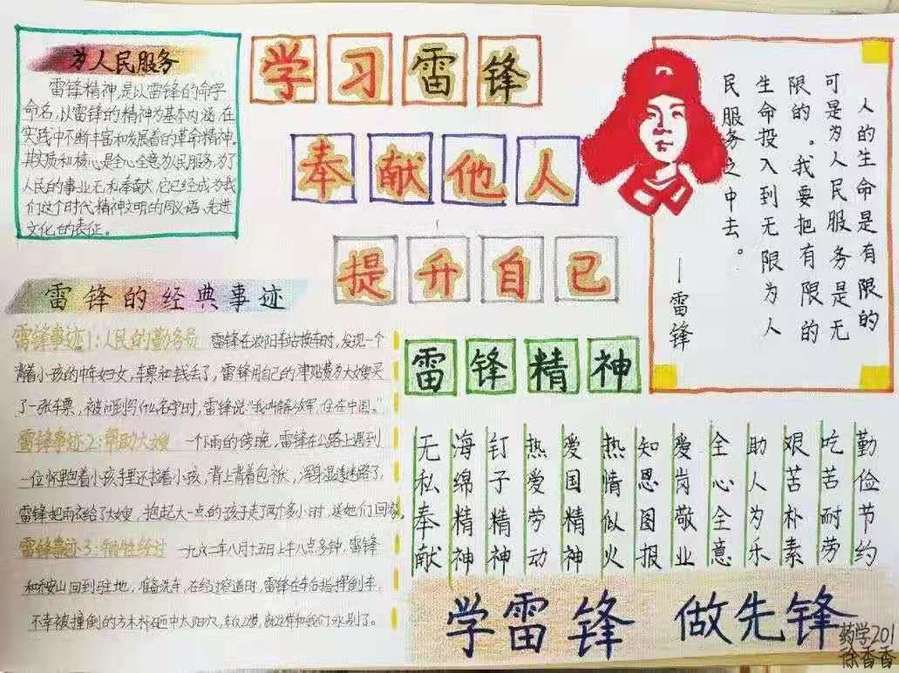 为人民服务
雷锋精神,是以雷锋的命字
命名,以雷锋的精神为基本内涵,在
实践中不断丰富和发展着的革命精神,
其实质和核心是全心全意为人民服务,为了
人民的事业无私奉献,它已经成为我
们这个时代精神文明的同义语、先进
文化的表征。
学习雷锋
奉献他人
提升自己
人的生命是有限的
可是为人民服务是无
限的。我要把有限的
生命投入到无限为人
民服务之中去。
—雷锋
雷锋的经典事迹
雷锋事迹1:人民的勤务员 雷锋在沈阳车站换车时,发现一个
背着小孩的中年妇女,车票和钱丢了,雷锋用自己的津贴费为大嫂买
了一张车票,被问到叫什么名字时,雷锋说:“我叫解放军,住在中国。”
雷锋事迹2:帮助大嫂 一个下雨的傍晚,雷锋在公路上遇到
一位怀里抱着小孩手里还拉着小孩,背上背着包袱,浑身湿透迷路了,
雷锋把雨衣给了大嫂,抱起大一点的孩子走了两个多小时,送她们回家。
雷锋事迹3:牺牲经过 一九六二年八月十五日上午八点多钟,雷锋
和乔安山回到驻地,准备洗车,在经过窄道时,雷锋在车后指挥倒车,
不幸被撞倒的方木杆砸中太阳穴,
雷锋精神
无私奉献
海绵精神
钉子精神
热爱劳动
爱国精神
热情似火
知恩图报
爱岗敬业
全心全意
助人为乐
艰苦朴素
吃苦耐劳
勤俭节约
学雷锋 做先锋
药学201
徐香香